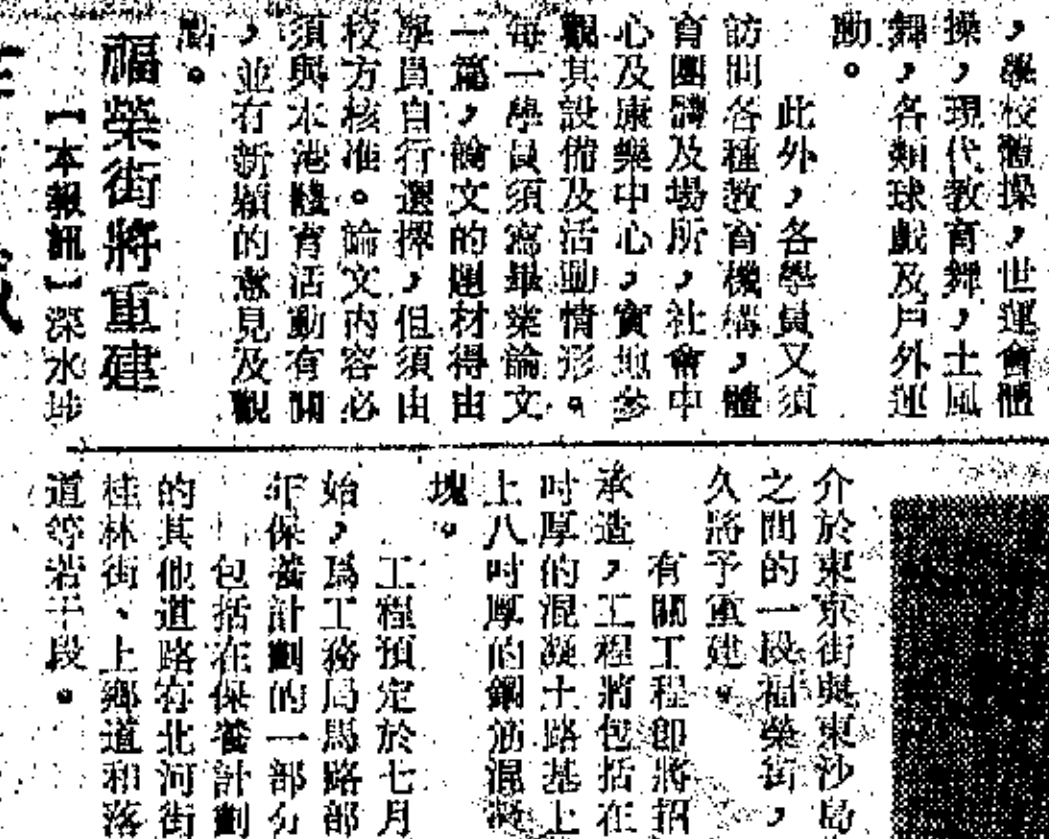 ，學校體操，世運會體
操，現代教育舞，土風
舞，各類球戲及戶外運
動。
此外，各學員又須
訪問各種教育機構，體
育團體及場所，社會中
心及康樂中心，實地參
觀其設備及活動情形。
每一學員須寫畢業論文
一篇，論文的題材得由
學員自行選擇，但須由
校方核准。論文內容必
須與本港體育活動有關
，並有新穎的意見及觀
點。
福榮街將重建
【本報訊】深水埗
介於東京街與東沙島
之間的一段福榮街，
久將予重建。
有關工程即將招
承造，工程將包括在
吋厚的混凝土路基上
上八吋厚的鋼筋混凝
塊。
工程預定於七月
始，爲工務局馬路部
年保養計劃的一部分
包括在保養計劃
的其他道路有北河街
桂林街、上鄉道和落
道等若干段。